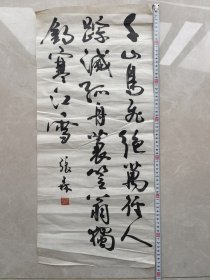 千山鳥飛絕萬徑人
蹤滅孤舟蓑笠翁獨
釣寒江雪
張森